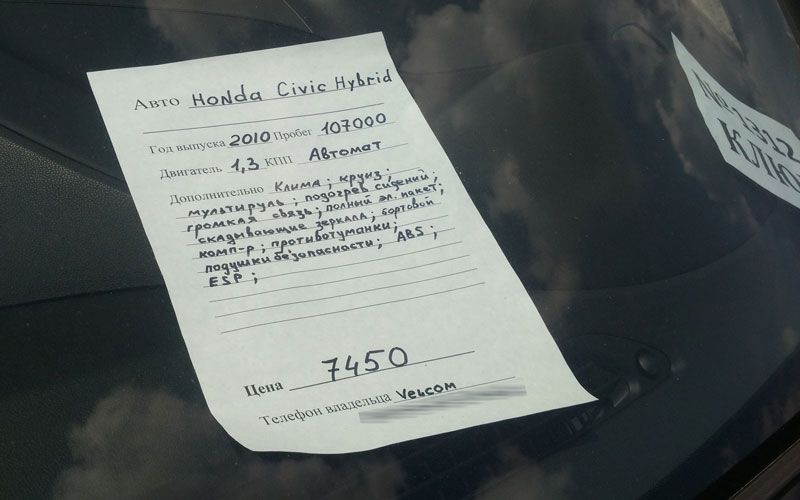 Авто Honda Civic Hybrid
Год выпуска 2010 Пробег 107000
Двигатель 1,3 КПП Автомат
Дополнительно Клима; круиз;
мультируль; подогрев сидений;
громкая связь; полный эл. пакет;
скадывающие зеркала; бортовой
комп-р; противотуманки;
подушки безопасности; ABS;
ESP;
Цена 7450
Телефон владельца Velcom
№ 1312
КЛЮ